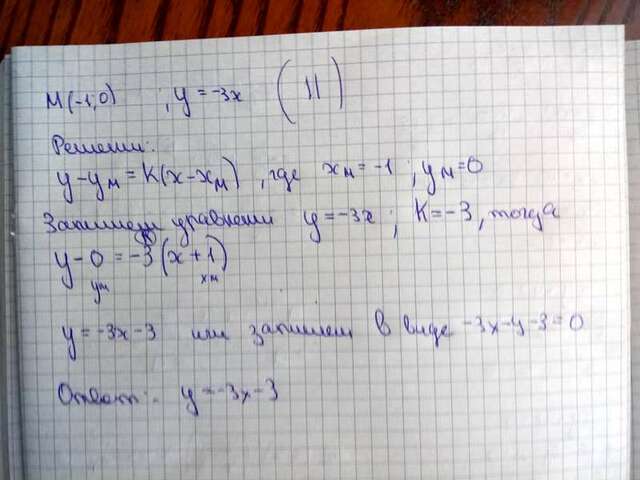 М(-1;0) ; y = -3x (||)
Решение:
y - yм = k(x - xм), где xм = -1; yм = 0
Запишем уравнение y = -3x; k = -3, тогда
y - 0 = -3(x + 1)
yм k xм
y = -3x - 3 или запишем в виде -3x - y - 3 = 0
Ответ: y = -3x - 3